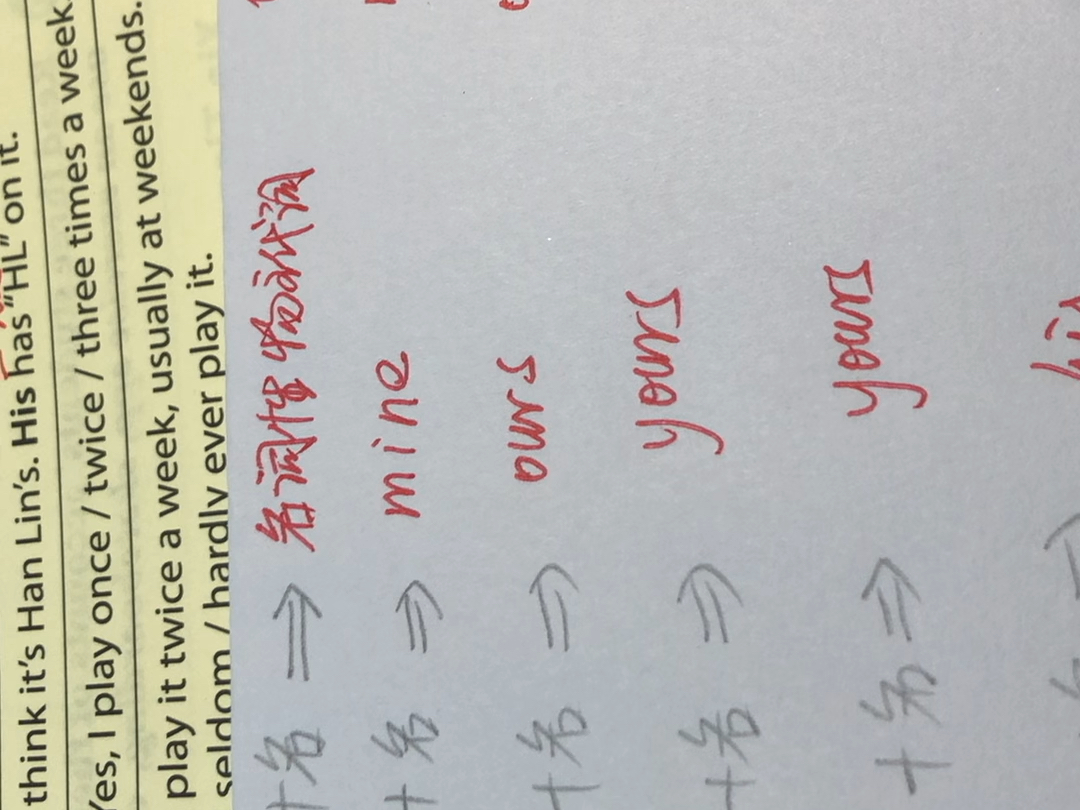 think it's Han Lin's. His has "HL" on it.
Yes, I play once / twice / three times a week.
play it twice a week, usually at weekends.
seldom / hardly ever play it.
+名 ⇒ 名词性物主代词
+名 ⇒ mine
+名 ⇒ ours
+名 ⇒ yours
+名 ⇒ yours
his